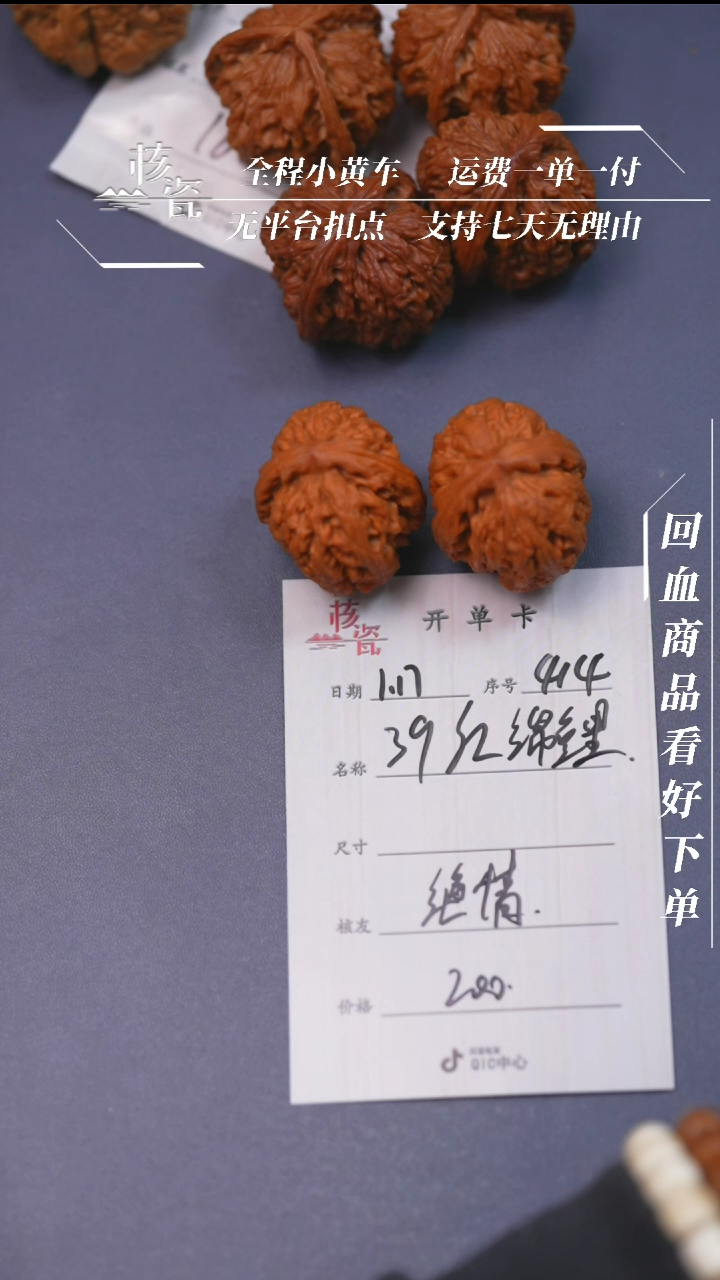 核瓷
全程小黄车 运费一单一付
无平台扣点 支持七天无理由
回血商品看好下单
核瓷
开单卡
日期 1.17 序号 414
名称 39红绵
尺寸
核友 绝情.
价格 200.
QIC中心